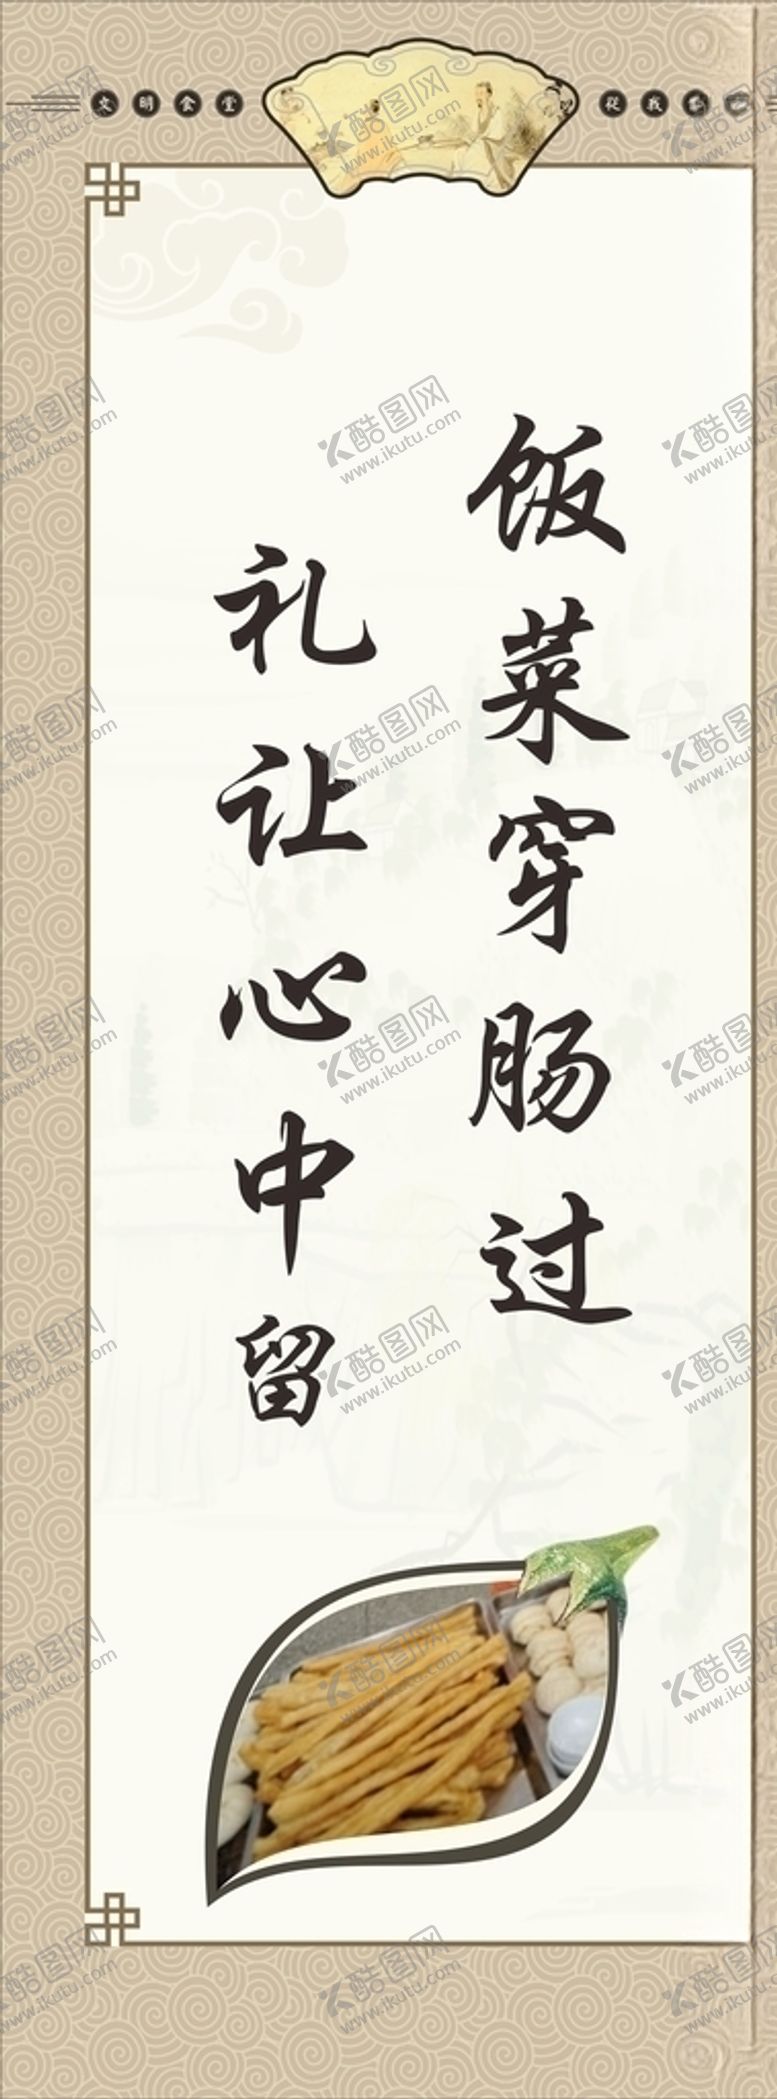 文明食堂
從我
饭菜穿肠过
礼让心中留
酷图网
www.ikutu.com